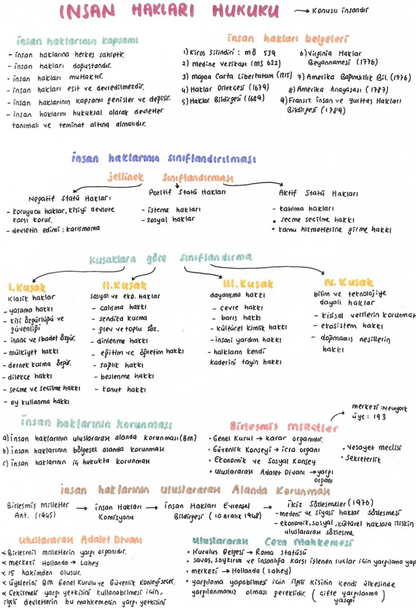 INSAN HAKLARI HUKUKU → Konusu insandır
insan haklarının kapsamı
- insan haklarına herkes sahiptir.
- insan hakları doğuştandır.
- insan hakları mutlaktır.
- insan hakları eşit ve devredilmezdir.
- insan haklarının kapsamı genişler ve değişir.
- insan hakların hukuksal olarak devletler
tanımalı ve teminat altına almalıdır.
insan hakları belgeleri
1) Kiros Silindiri: MÖ 539
2) medine vesikası (MS 622)
3) magna Carta Libertatum (1215)
4) Haklar Dilekçesi (1679)
5) Haklar Bildirgesi (1689)
6) Virginia Haklar
Beyannamesi (1776)
7) Amerika Bağımsızlık Bil. (1776)
8) Amerika Anayasası (1787)
9) Fransız insan ve yurttaş Hakları
Bildirgesi (1789)
insan haklarının sınıflandırılması
jellinek sınıflandırması
Negatif Statü Hakları
- koruyucu haklar, kişiyi devlete
karşı korur.
- devletin edimi: karışmama
Pozitif Statü Hakları
- isteme hakları
- sosyal haklar
Aktif Statü Hakları
- katılma hakları
• seçme seçilme hakkı
• kamu hizmetlerine girme hakkı
Kuşaklara göre sınıflandırma
I. Kuşak
Klasik haklar
- yaşama hakkı
- kişi özgürlüğü ve
güvenliği
- inanç ve ibadet özgür.
- mülkiyet hakkı
- dernek kurma özgür.
- dilekçe hakkı
- seçme ve seçilme hakkı
- oy kullanma hakkı
II. Kuşak
sosyal ve eko. haklar
- çalışma hakkı
- sendika kurma
- grev ve toplu söz.
- dinlenme hakkı
- eğitim ve öğretim hakkı
- sağlık hakkı
- beslenme hakkı
- konut hakkı
III. Kuşak
dayanışma hakkı
- çevre hakkı
- barış hakkı
- kültürel kimlik hakkı
- insani yardım hakkı
- halkların kendi
kaderini tayin hakkı
IV. Kuşak
bilim ve teknolojiye
dayalı haklar
- kişisel verilerin korunması
- ekosistem hakkı
- doğmamış nesillerin
hakkı
insan haklarının korunması
a) insan haklarının uluslararası alanda korunması (Bm)
b) insan haklarının bölgesel alanda korunması
c) insan haklarının iç hukukta korunması
Birleşmiş milletler
merkezi: Newyork
üye: 193
• Genel Kurul → karar organıdır.
• Güvenlik Konseyi → icra organı
• Ekonomik ve Sosyal Konsey
• Uluslararası Adalet Divanı → yargı
organı
• Vesayet meclisi
• Sekreterlik
insan haklarının uluslararası Alanda Korunması
Birleşmiş milletler
Ant. (1945)
→ insan Hakları
Komisyonu
→ insan Hakları Evrensel
Bildirgesi (10 Aralık 1948)
→ ikiz Sözleşmeler (1976)
- medeni ve siyasi haklar sözleşmesi
- ekonomik, sosyal, kültürel haklara ilişkin
uluslararası sözleşme
uluslararası Adalet Divanı
< Birleşmiş milletlerin yargı organıdır.
< merkezi Hollanda → Lahey
< 15 hakimden oluşur.
< üyelerini BM Genel Kurulu ve Güvenlik Konseyi seçer.
< Çekişmeli yargı yetkisini kullanabilmesi için,
ilgili devletlerin bu mahkemenin yargı yetkisini
uluslararası Ceza Mahkemesi
- Kuruluş Belgesi → Roma Statüsü
- savaş, soykırım ve insanlığa karşı işlenen suçlar için yargılama yapar
- merkezi → Hollanda (Lahey)
- yargılama yapabilmesi için ilgili kişinin kendi ülkesinde
yargılanmamış olması gereklidir. (çifte yargılama)
yasağı